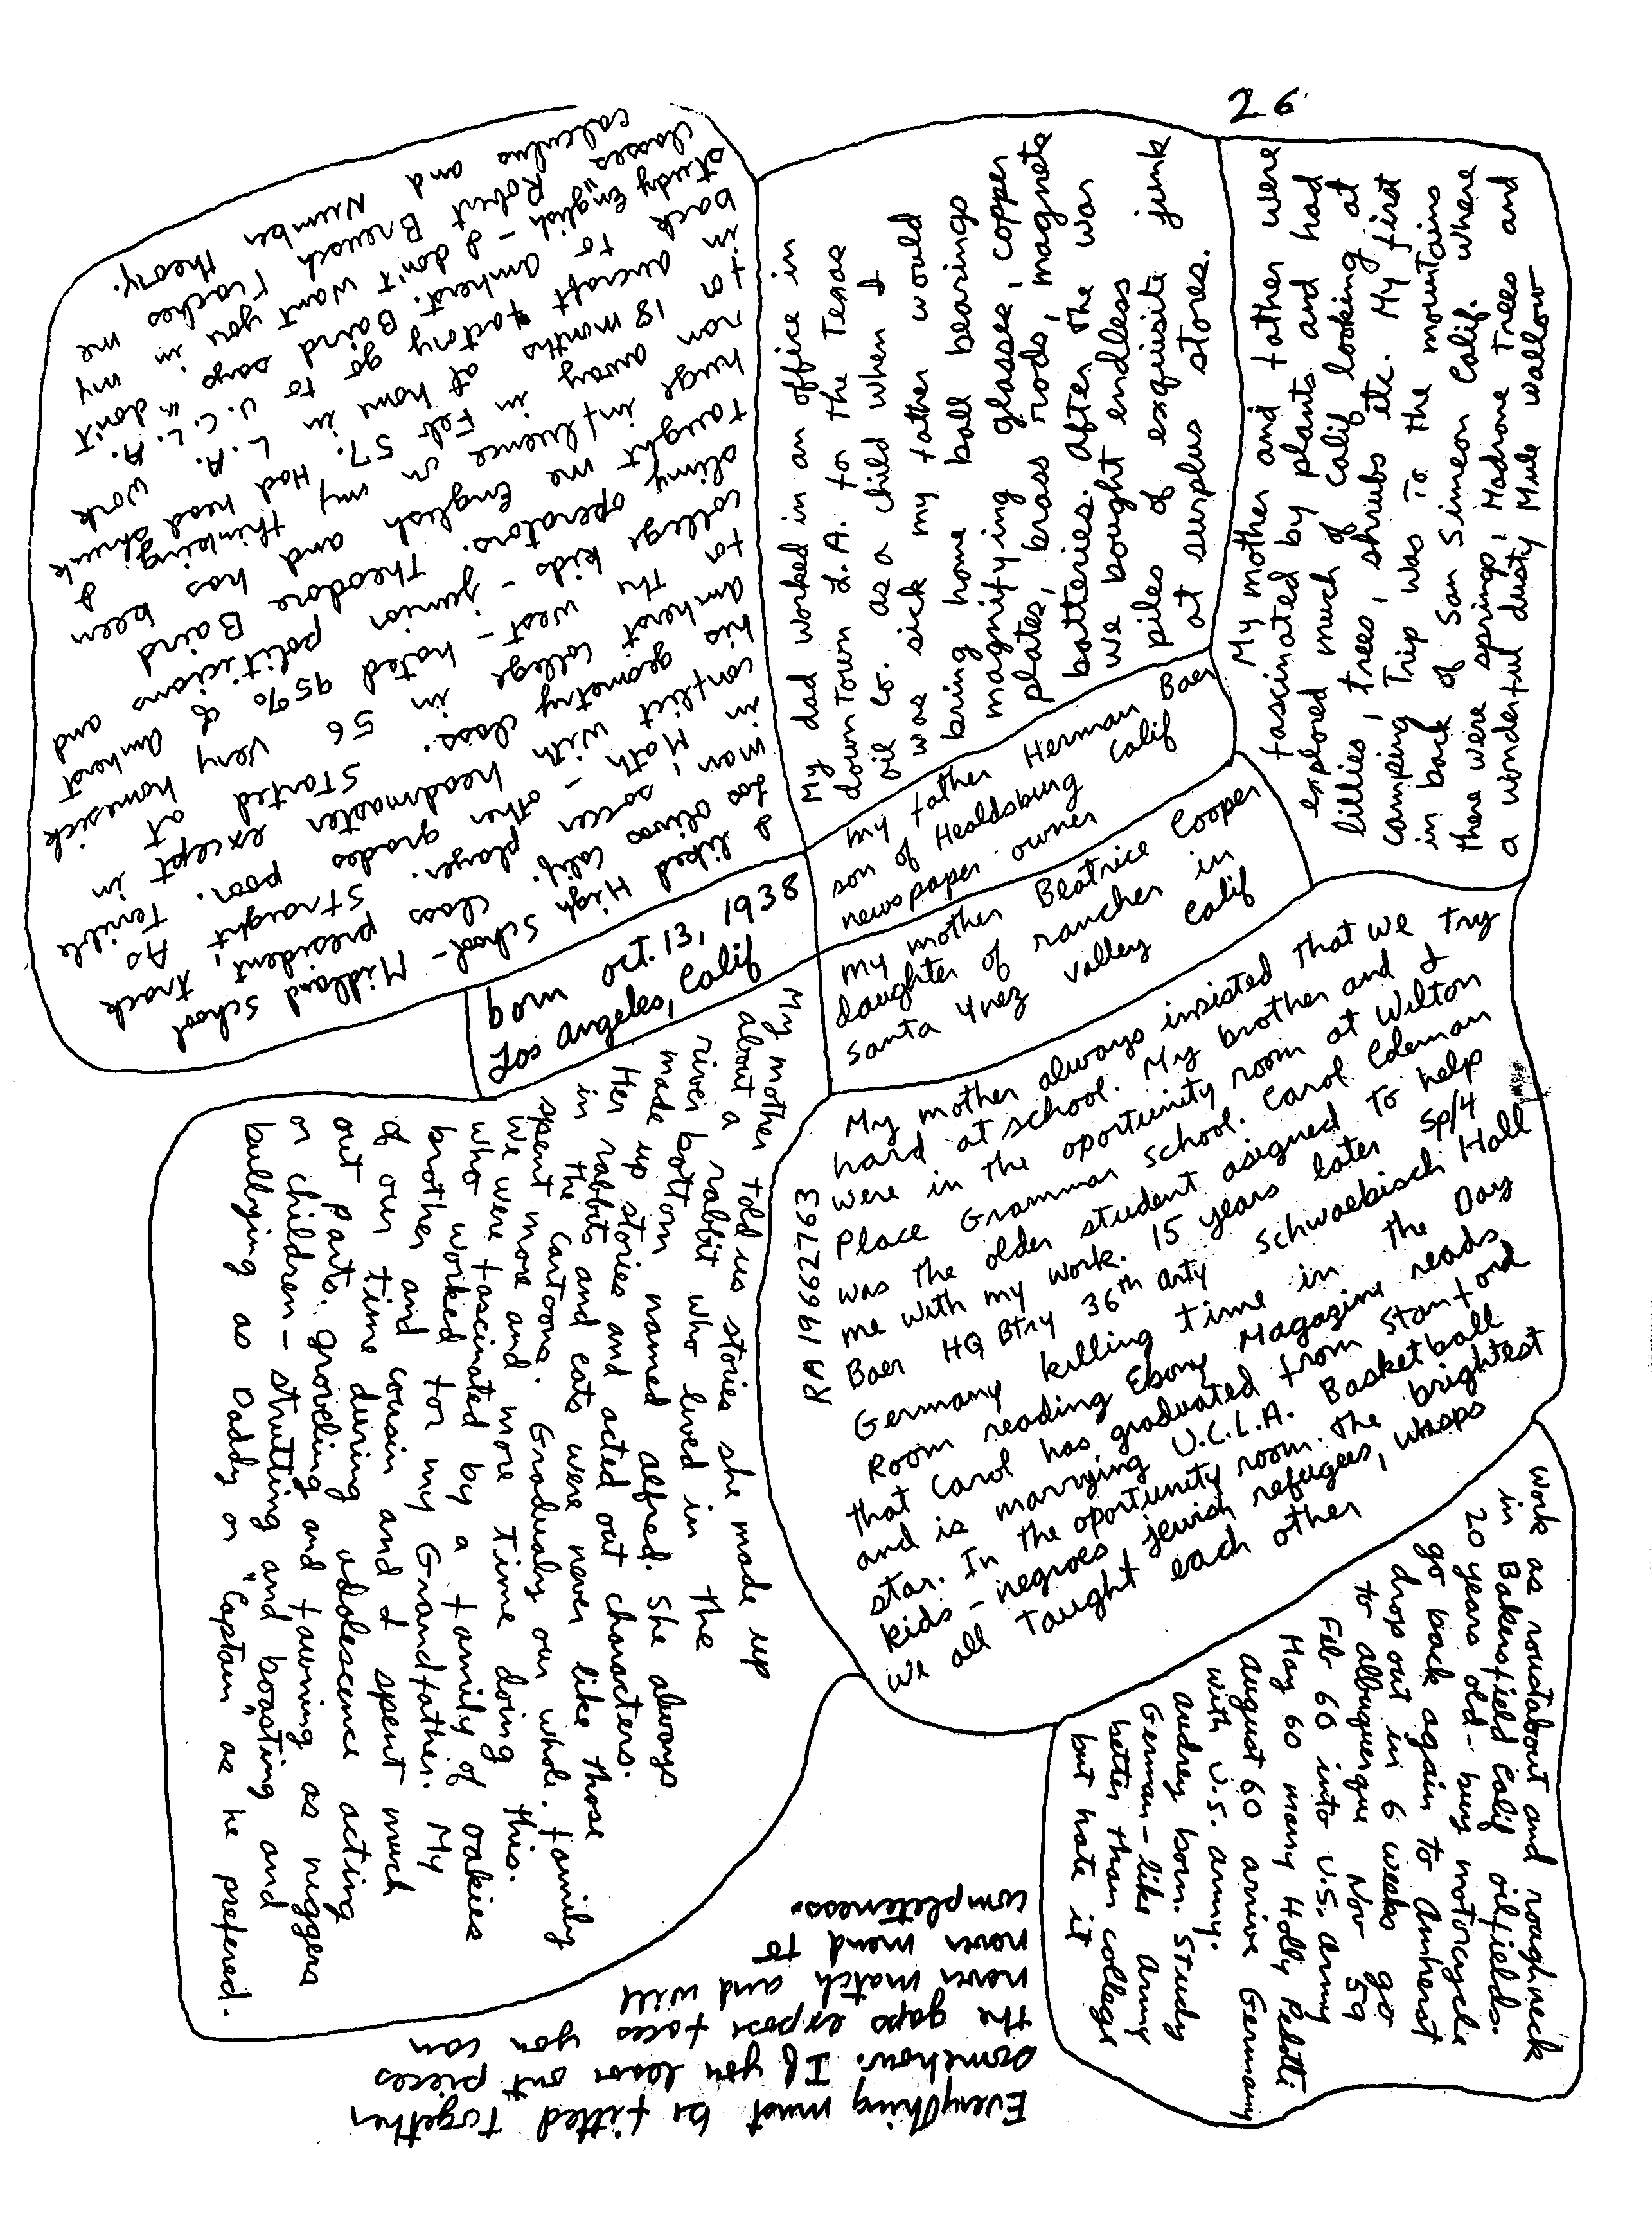 26
born Oct. 13, 1938
Los Angeles, Calif
my father Herman Baer
son of Healdsburg Calif
newspaper owner
my mother Beatrice Cooper
daughter of rancher in
Santa Ynez Valley Calif
My dad worked in an office in
downtown L.A. for the Texas
oil Co. as a child when I
was sick my father would
bring home ball bearings
magnifying glasses, copper
plates, brass rods, magnets
batteries. After the war
we bought endless
piles of exquisite junk
at surplus stores.
My mother and father were
fascinated by plants and had
explored much of Calif looking at
lillies, trees, shrubs etc. My first
camping Trip was To the mountains
in back of San Simeon Calif. where
there were springs, Madrone Trees and
a wonderful dusty Mule wallow
My mother always insisted That we try
hard at school. My brother and I
were in the oportunity room at Wilton
Place Grammar School. Carol Edeman
was the older student asigned To help
me with my work. 15 years later SP/4
Baer HQ Btry 36th Arty Schwaebisch Hall
Germany killing time in the Day
Room reading Ebony Magazine reads
that Carol has graduated from Stanford
and is marrying U.C.L.A. Basketball
star. In the oportunity room. The brightest
kids - negroes, jewish refugees, whasps
we all Taught each other
RA 19662763
My mother told us stories she made up
about a rabbit who lived in the
river bottom named alfred. She always
made up stories and acted out characters.
Her rabbits and cats were never like those
in the cartoons. Gradualy our whole family
spent more and more time doing this.
we were fascinated by a family of oakies
who worked for my Grandfather. My
brother and cousin and I spent much
of our time during adolescence acting
out parts. groveling and fawning as niggers
or children - strutting and boasting and
bullying as Daddy or "Captain" as he prefered.
I liked High School - Midland School
Los Olivos Calif. class president, track
man, soccer player. Straight As
in Math - other grades poor. Terrible
conflict with headmaster except in
his geometry class. Started at
Amherst college in 56 very homesick
for the west - hated 95% of Amherst
college kids - junior politicians and
slimy operators. Theodore Baird
Taught me English and has been
huge influence in my thinking I
ran away in Feb 57. Had head shrunk
for 18 months at home in L.A. work
in aircraft factory go to U.C.L.A.
back to Amherst. Baird says "don't
study English - I don't want you in my
classes" Robert Breusch Teaches me
calculus and Number theory.
work as roustabout and roughneck
in Bakersfield Calif oilfields.
20 years old - buy motorcycle
go back again to Amherst
drop out in 6 weeks go
to albuquerque Nov 59
Feb 60 into U.S. Army
May 60 marry Holly Pedotti
August 60 arrive Germany
with U.S. army.
Audrey born. Study
German - like Army
better than college
but hate it
Everything must be fitted Together
somehow. If you leave out pieces
the gaps expose faces you can
never match and will
never mend to
completeness.